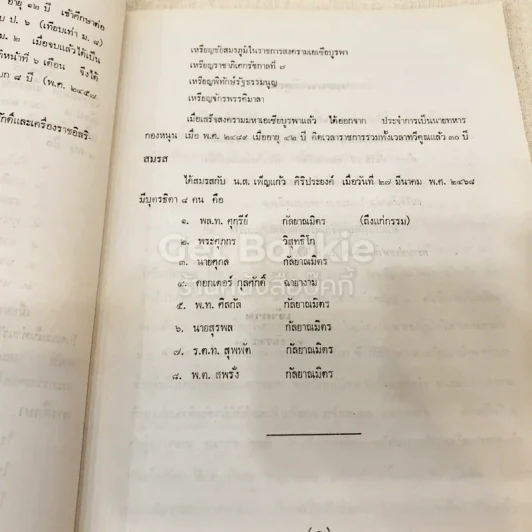 อายุ ๑๒ ปี เข้าศึกษาต่อ
ป. ๖ (เทียบเท่า ม. ๘)
ม. ๒ เมื่อจบแล้วได้เป็น
หน้าที่ ๖ เดือน จึงได้
๘ ปี (พ.ศ. ๒๔๕๘
และเครื่องราชอิสริ-
เหรียญชัยสมรภูมิในราชการสงครามเอเซียบูรพา
เหรียญราชาภิเศกรัชกาลที่ ๗
เหรียญพิทักษ์รัฐธรรมนูญ
เหรียญจักรพรรดิมาลา
เมื่อเสร็จสงครามมหาเอเซียบูรพาแล้ว ได้ออกจาก ประจำการเป็นนายทหาร
กองหนุน เมื่อ พ.ศ. ๒๔๘๙ เมื่ออายุ ๔๒ ปี คิดเวลาราชการรวมทั้งเวลาทวีคูณแล้ว ๓๐ ปี
สมรส
ได้สมรสกับ น.ส. เพ็ญแก้ว ศิริประยงค์ เมื่อวันที่ ๒๗ มีนาคม พ.ศ. ๒๔๖๘
มีบุตรธิดา ๘ คน คือ
๑. พล.ท. ศุกรีย์ กัลยาณมิตร (ถึงแก่กรรม)
๒. พระศุภกร วิสุทธิโก
๓. นายศุกล กัลยาณมิตร
๔. ดอกเตอร์ กุลศักดิ์ ฉายางาม
๕. พ.ท. ศิลกัล กัลยาณมิตร
๖. นายสุรพล กัลยาณมิตร
๗. ร.ต.ท. สุพพัต กัลยาณมิตร
๘. พ.ต. สพรั่ง กัลยาณมิตร
Get Bookie
ร้านหนังสือบุ๊คกี้